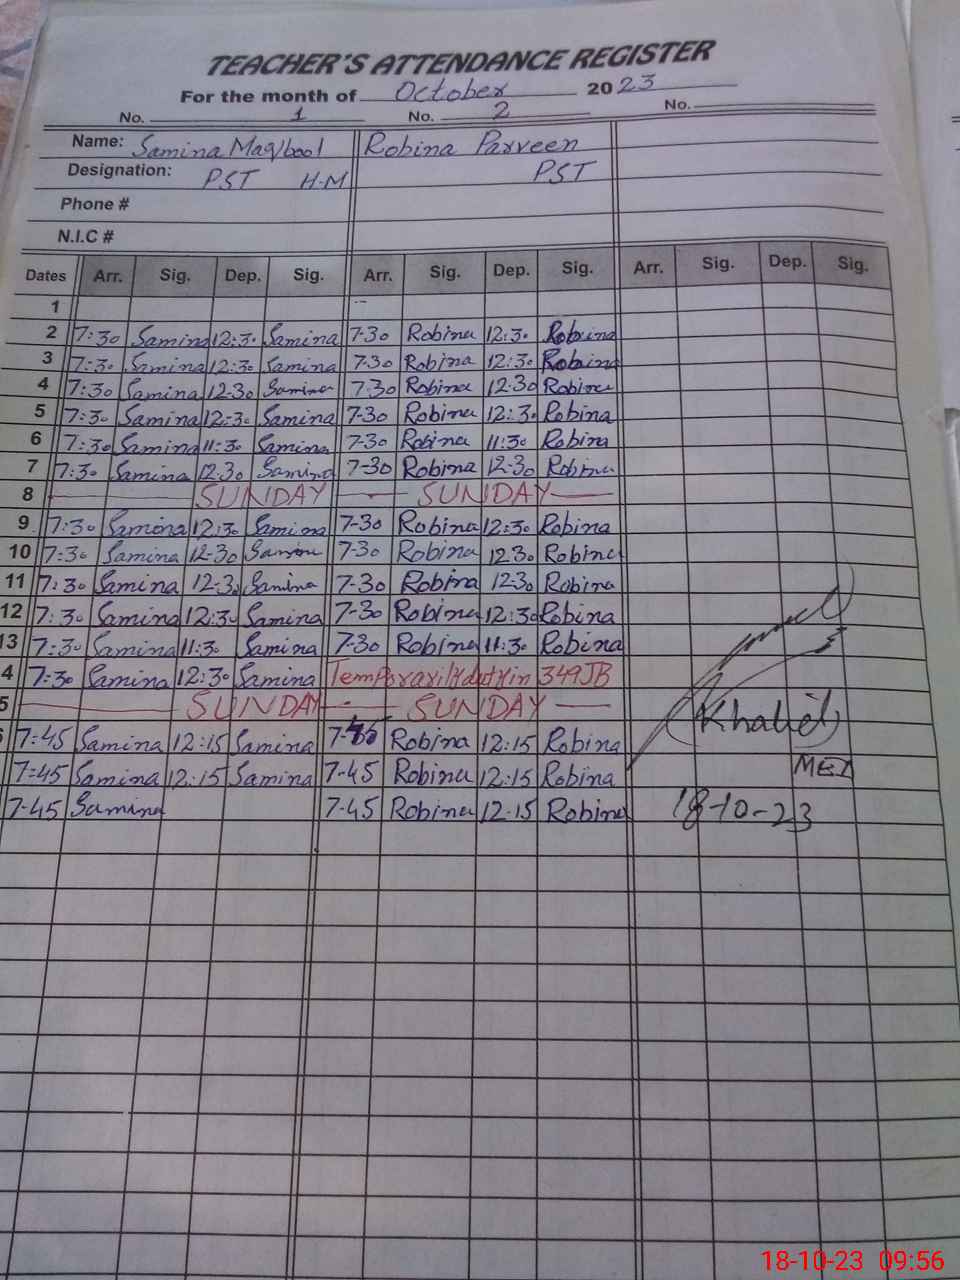 TEACHER'S ATTENDANCE REGISTER
For the month of October 2023
No. 1 No. 2 No.
Name: Samina Maqbool Robina Parveen
Designation: PST H-M PST
Phone #
N.I.C #
Dates Arr. Sig. Dep. Sig. Arr. Sig. Dep. Sig. Arr. Sig. Dep. Sig.
1
2 7:30 Samina 12:30 Samina 7-30 Robina 12:30 Robina
3 7:30 Samina 12:30 Samina 7-30 Robina 12:30 Robina
4 7:30 Samina 12-30 Samina 7-30 Robina 12-30 Robina
5 7:30 Samina 12:30 Samina 7-30 Robina 12:30 Robina
6 7:30 Samina 11:30 Samina 7-30 Robina 11:30 Robina
7 7:30 Samina 12-30 Samina 7-30 Robina 12-30 Robina
8 SUNDAY SUNDAY
9 7:30 Samina 12:30 Samina 7-30 Robina 12:30 Robina
10 7:30 Samina 12-30 Samina 7-30 Robina 12.30 Robina
11 7:30 Samina 12-30 Samina 7-30 Robina 12-30 Robina
12 7:30 Samina 12:30 Samina 7-30 Robina 12:30 Robina
13 7:30 Samina 11:30 Samina 7-30 Robina 11:30 Robina
4 7:30 Samina 12:30 Samina Temporarily duty in 349JB
5 SUNDAY SUNDAY
7:45 Samina 12:15 Samina 7-45 Robina 12:15 Robina
(Khalid)
7:45 Samina 12:15 Samina 7-45 Robina 12:15 Robina
7-45 Samina 7-45 Robina 12-15 Robina 18-10-23
18-10-23 09:56